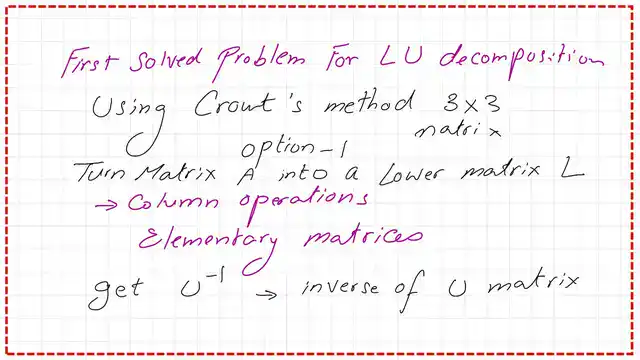 First Solved Problem For LU decomposition
Using Crout's method 3x3
matrix
option-1
Turn Matrix A into a Lower matrix L
→ Column operations
Elementary matrices
get U⁻¹ → inverse of U matrix